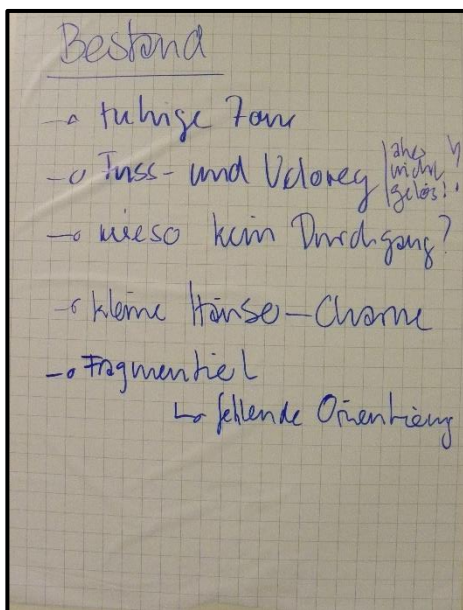 Bestand
→ ruhige Zone
→ Fuss- und Veloweg
aber nicht gelöst!
→ wieso kein Durchgang?
→ kleine Häuser – Charme
→ Fragmentiert
↳ fehlende Orientierung